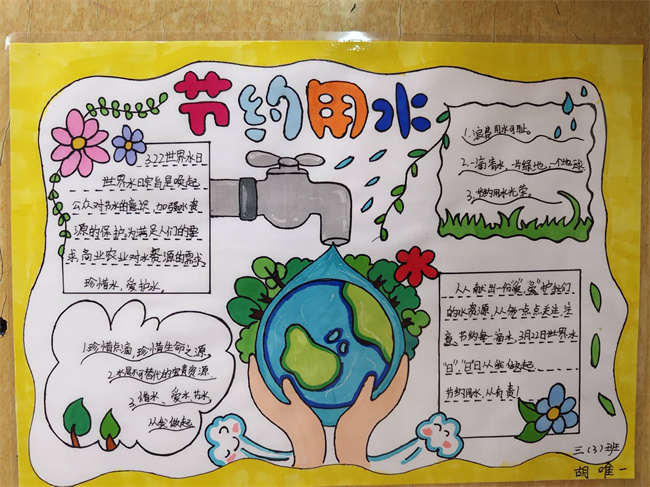 节约用水
3.22世界水日
世界水日宗旨是唤起
公众对节水的意识,加强水资
源的保护,为满足人们的要
求,商业农业对水资源的需求,
珍惜水,爱护水。
1.浪费用水可耻。
2.一滴清水,一片绿地,一个地球
3.节约用水光荣。
1.珍惜点滴,珍惜生命之源。
2.水是不可替代的宝贵资源
3.惜水、爱水、节水,
从我做起
人人献出一份“爱”,爱护我们
的水资源,从每一点点关注,注
意,节约每一滴水,3月22日世界水
“日”,“日”日从我做起
节约用水,人人有责!
三(3)班
胡唯一